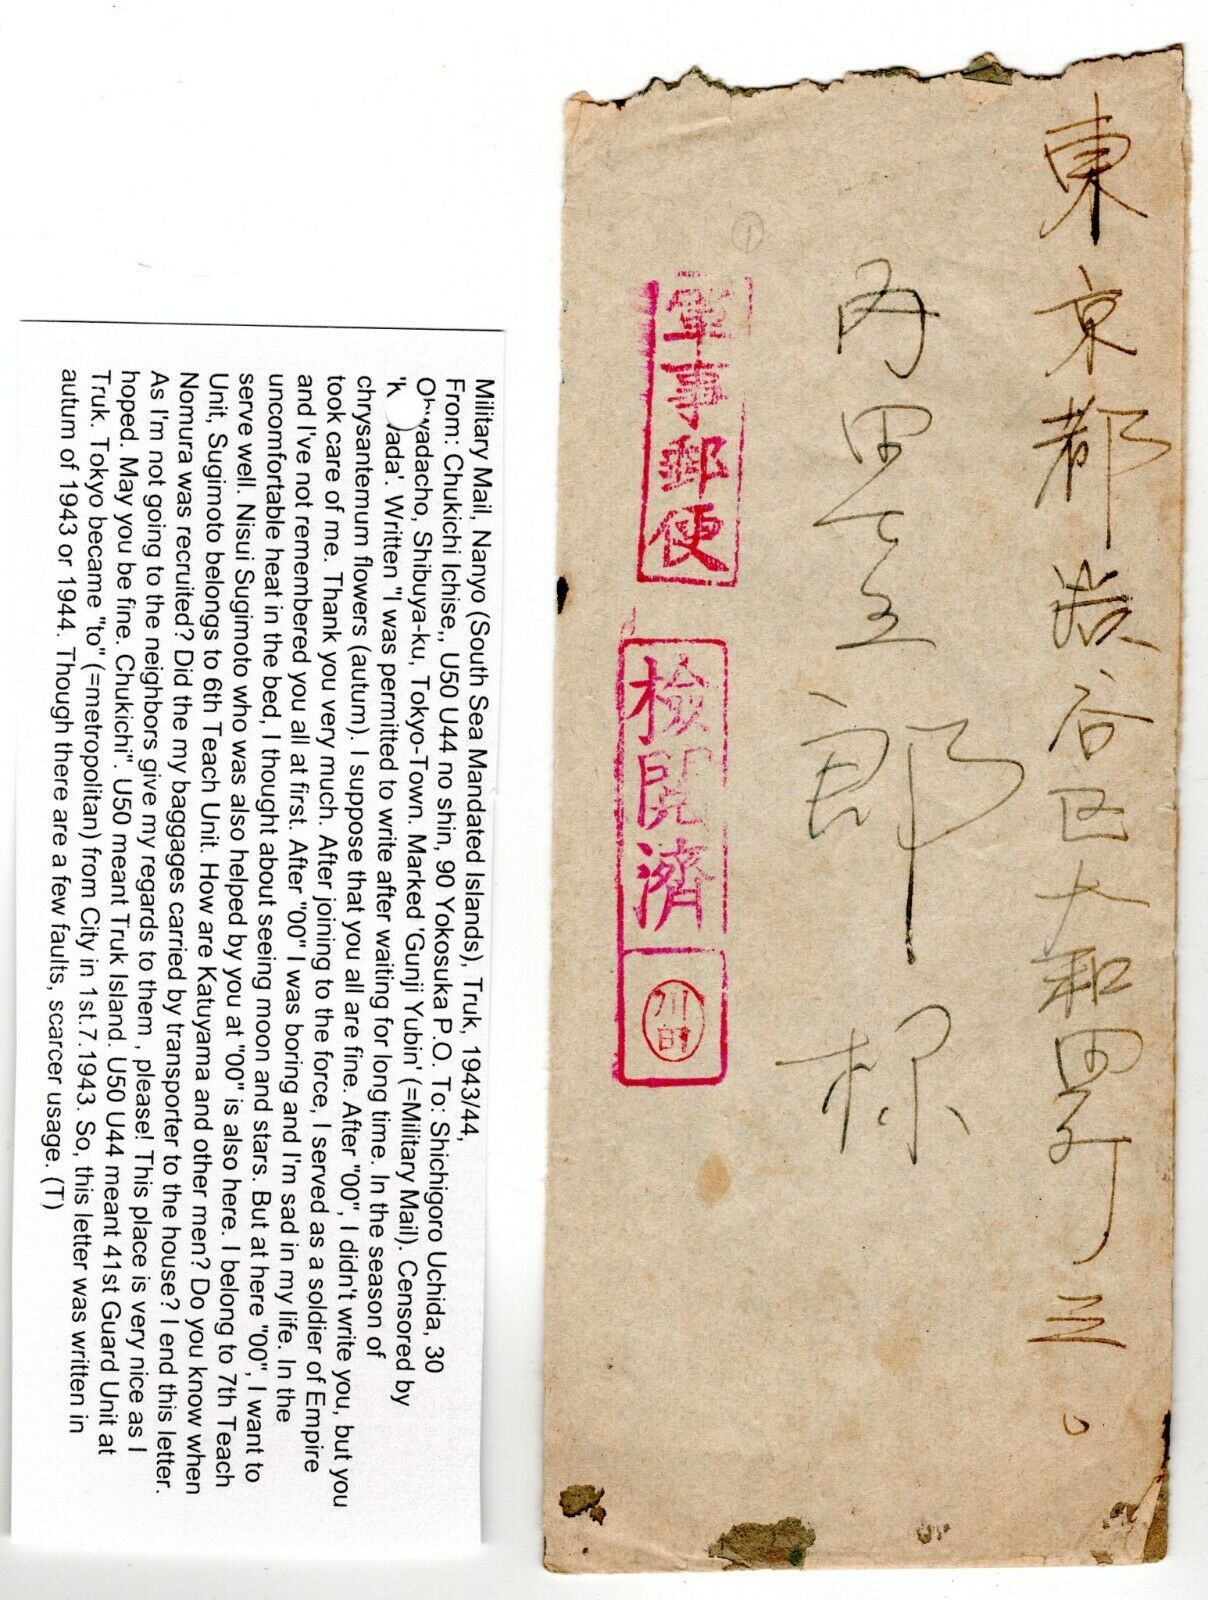 東京都渋谷区大和田町三〇
内田七五郎様
軍事郵便
検閲済
川田
Military Mail, Nanyo (South Sea Mandated Islands), Truk, 1943/44,
From: Chukichi Ichise,, U50 U44 no shin, 90 Yokosuka P.O. To: Shichigoro Uchida, 30
Oh wadacho, Shibuya-ku, Tokyo-Town. Marked 'Gunji Yubin' (=Military Mail). Censored by
'K wada'. Written "I was permitted to write after waiting for long time. In the season of
chrysantemum flowers (autum). I suppose that you all are fine. After "00", I didn't write you, but you
took care of me. Thank you very much. After joining to the force, I served as a soldier of Empire
and I've not remembered you all at first. After "00" I was boring and I'm sad in my life. In the
uncomfortable heat in the bed, I thought about seeing moon and stars. But at here "00", I want to
serve well. Nisui Sugimoto who was also helped by you at "00" is also here. I belong to 7th Teach
Unit, Sugimoto belongs to 6th Teach Unit. How are Katuyama and other men? Do you know when
Nomura was recruited? Did the my baggages carried by transporter to the house? I end this letter.
As I'm not going to the neighbors give my regards to them , please! This place is very nice as I
hoped. May you be fine. Chukichi". U50 meant Truk Island. U50 U44 meant 41st Guard Unit at
Truk. Tokyo became "to" (=metropolitan) from City in 1st.7.1943. So, this letter was written in
autum of 1943 or 1944. Though there are a few faults, scarcer usage. (T)